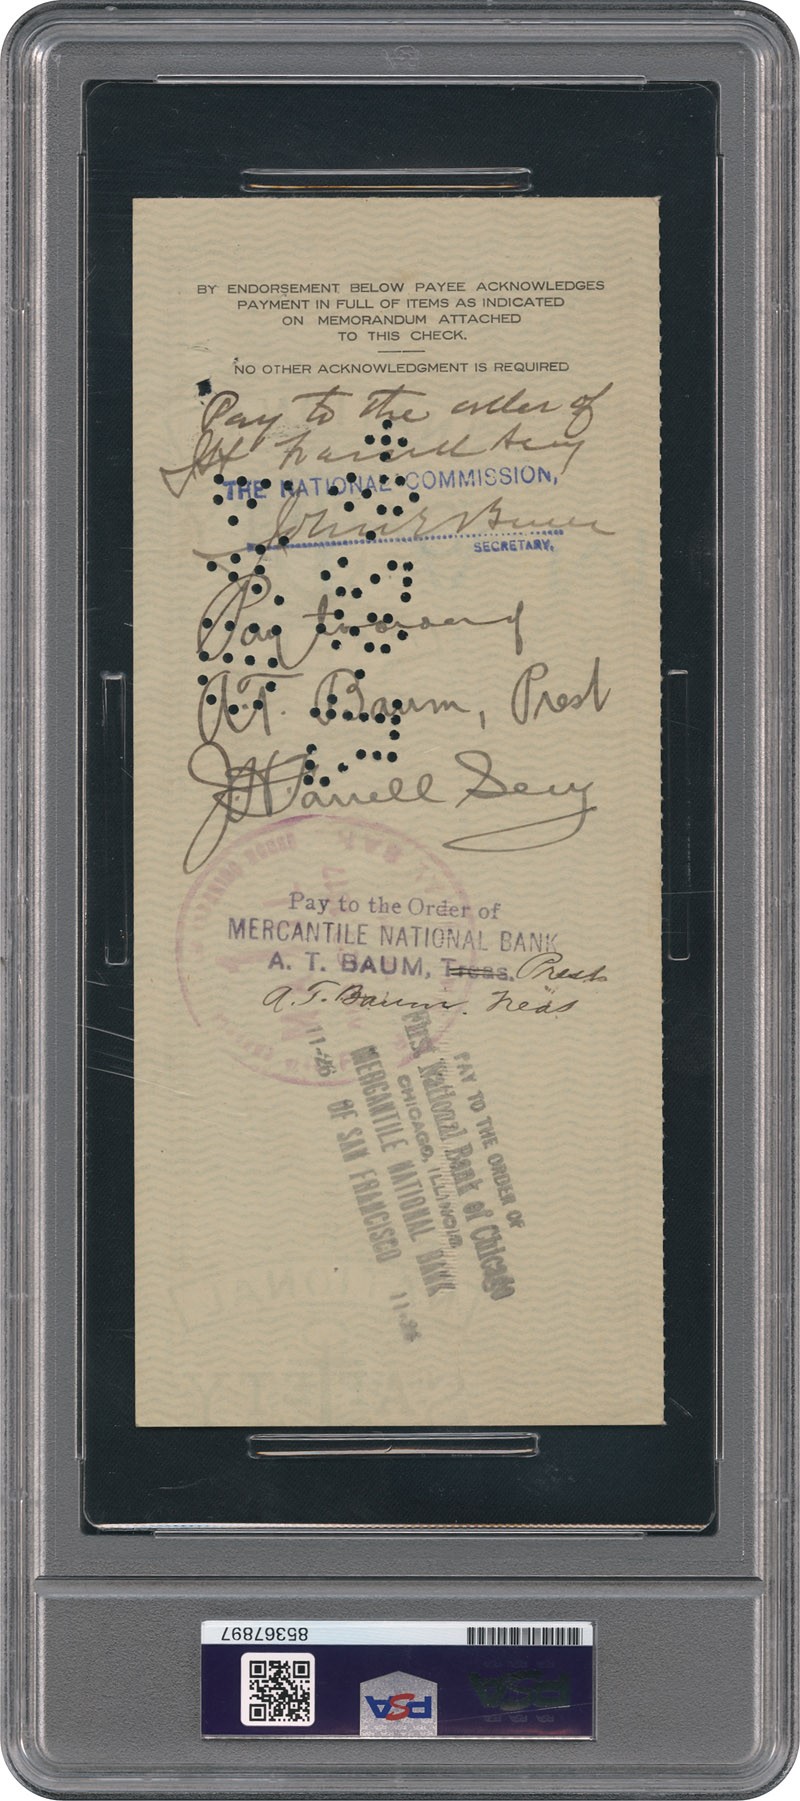 BY ENDORSEMENT BELOW PAYEE ACKNOWLEDGES
PAYMENT IN FULL OF ITEMS AS INDICATED
ON MEMORANDUM ATTACHED
TO THIS CHECK.
NO OTHER ACKNOWLEDGMENT IS REQUIRED
Pay to the order of
J H Farrell Secy
THE NATIONAL COMMISSION,
John E Bruce
SECRETARY.
Pay to
A.T. Baum, Prest
J.H. Farrell Secy
Pay to the Order of
MERCANTILE NATIONAL BANK
A. T. BAUM, Treas. Prest
A.T. Baum. Treas
PAY TO THE ORDER OF
First National Bank of Chicago
CHICAGO, ILLINOIS
MERCANTILE NATIONAL BANK
OF SAN FRANCISCO
11-26
85367897
PSA
PSA